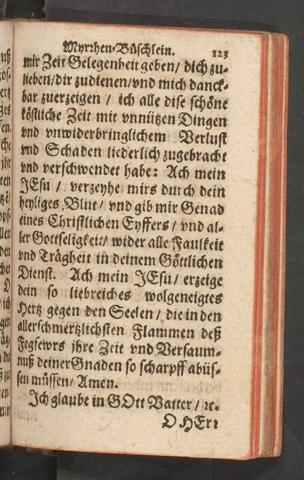 Myrrhen-Büschlein. 123
mir Zeit Gelegenheit geben/ dich zu-
lieben/dir zudienen/vnd mich danck-
bar zuerzeigen / ich alle dise schöne
köstliche Zeit mit vnnützen Dingen
vnd vnwiderbringlichem Verlust
vnd Schaden liederlich zugebracht
vnd verschwendet habe: Ach mein
JEsu / verzeyhe mirs durch dein
heyliges Blut/ vnd gib mir Genad
eines Christlichen Eyffers/ vnd al-
ler Gottseligkeit/ wider alle Faulkeit
vnd Trägheit in deinem Göttlichen
Dienst. Ach mein JEsu/ erzeige
dein so liebreiches wolgeneigtes
Hertz gegen den Seelen / die in den
allerschmertzlichsten Flammen deß
Fegfewrs jhre Zeit vnd Versaum-
nuß deiner Gnaden so scharpff abüs-
sen müssen/ Amen.
Jch glaube in GOtt Vatter/ ꝛc.
O HErr